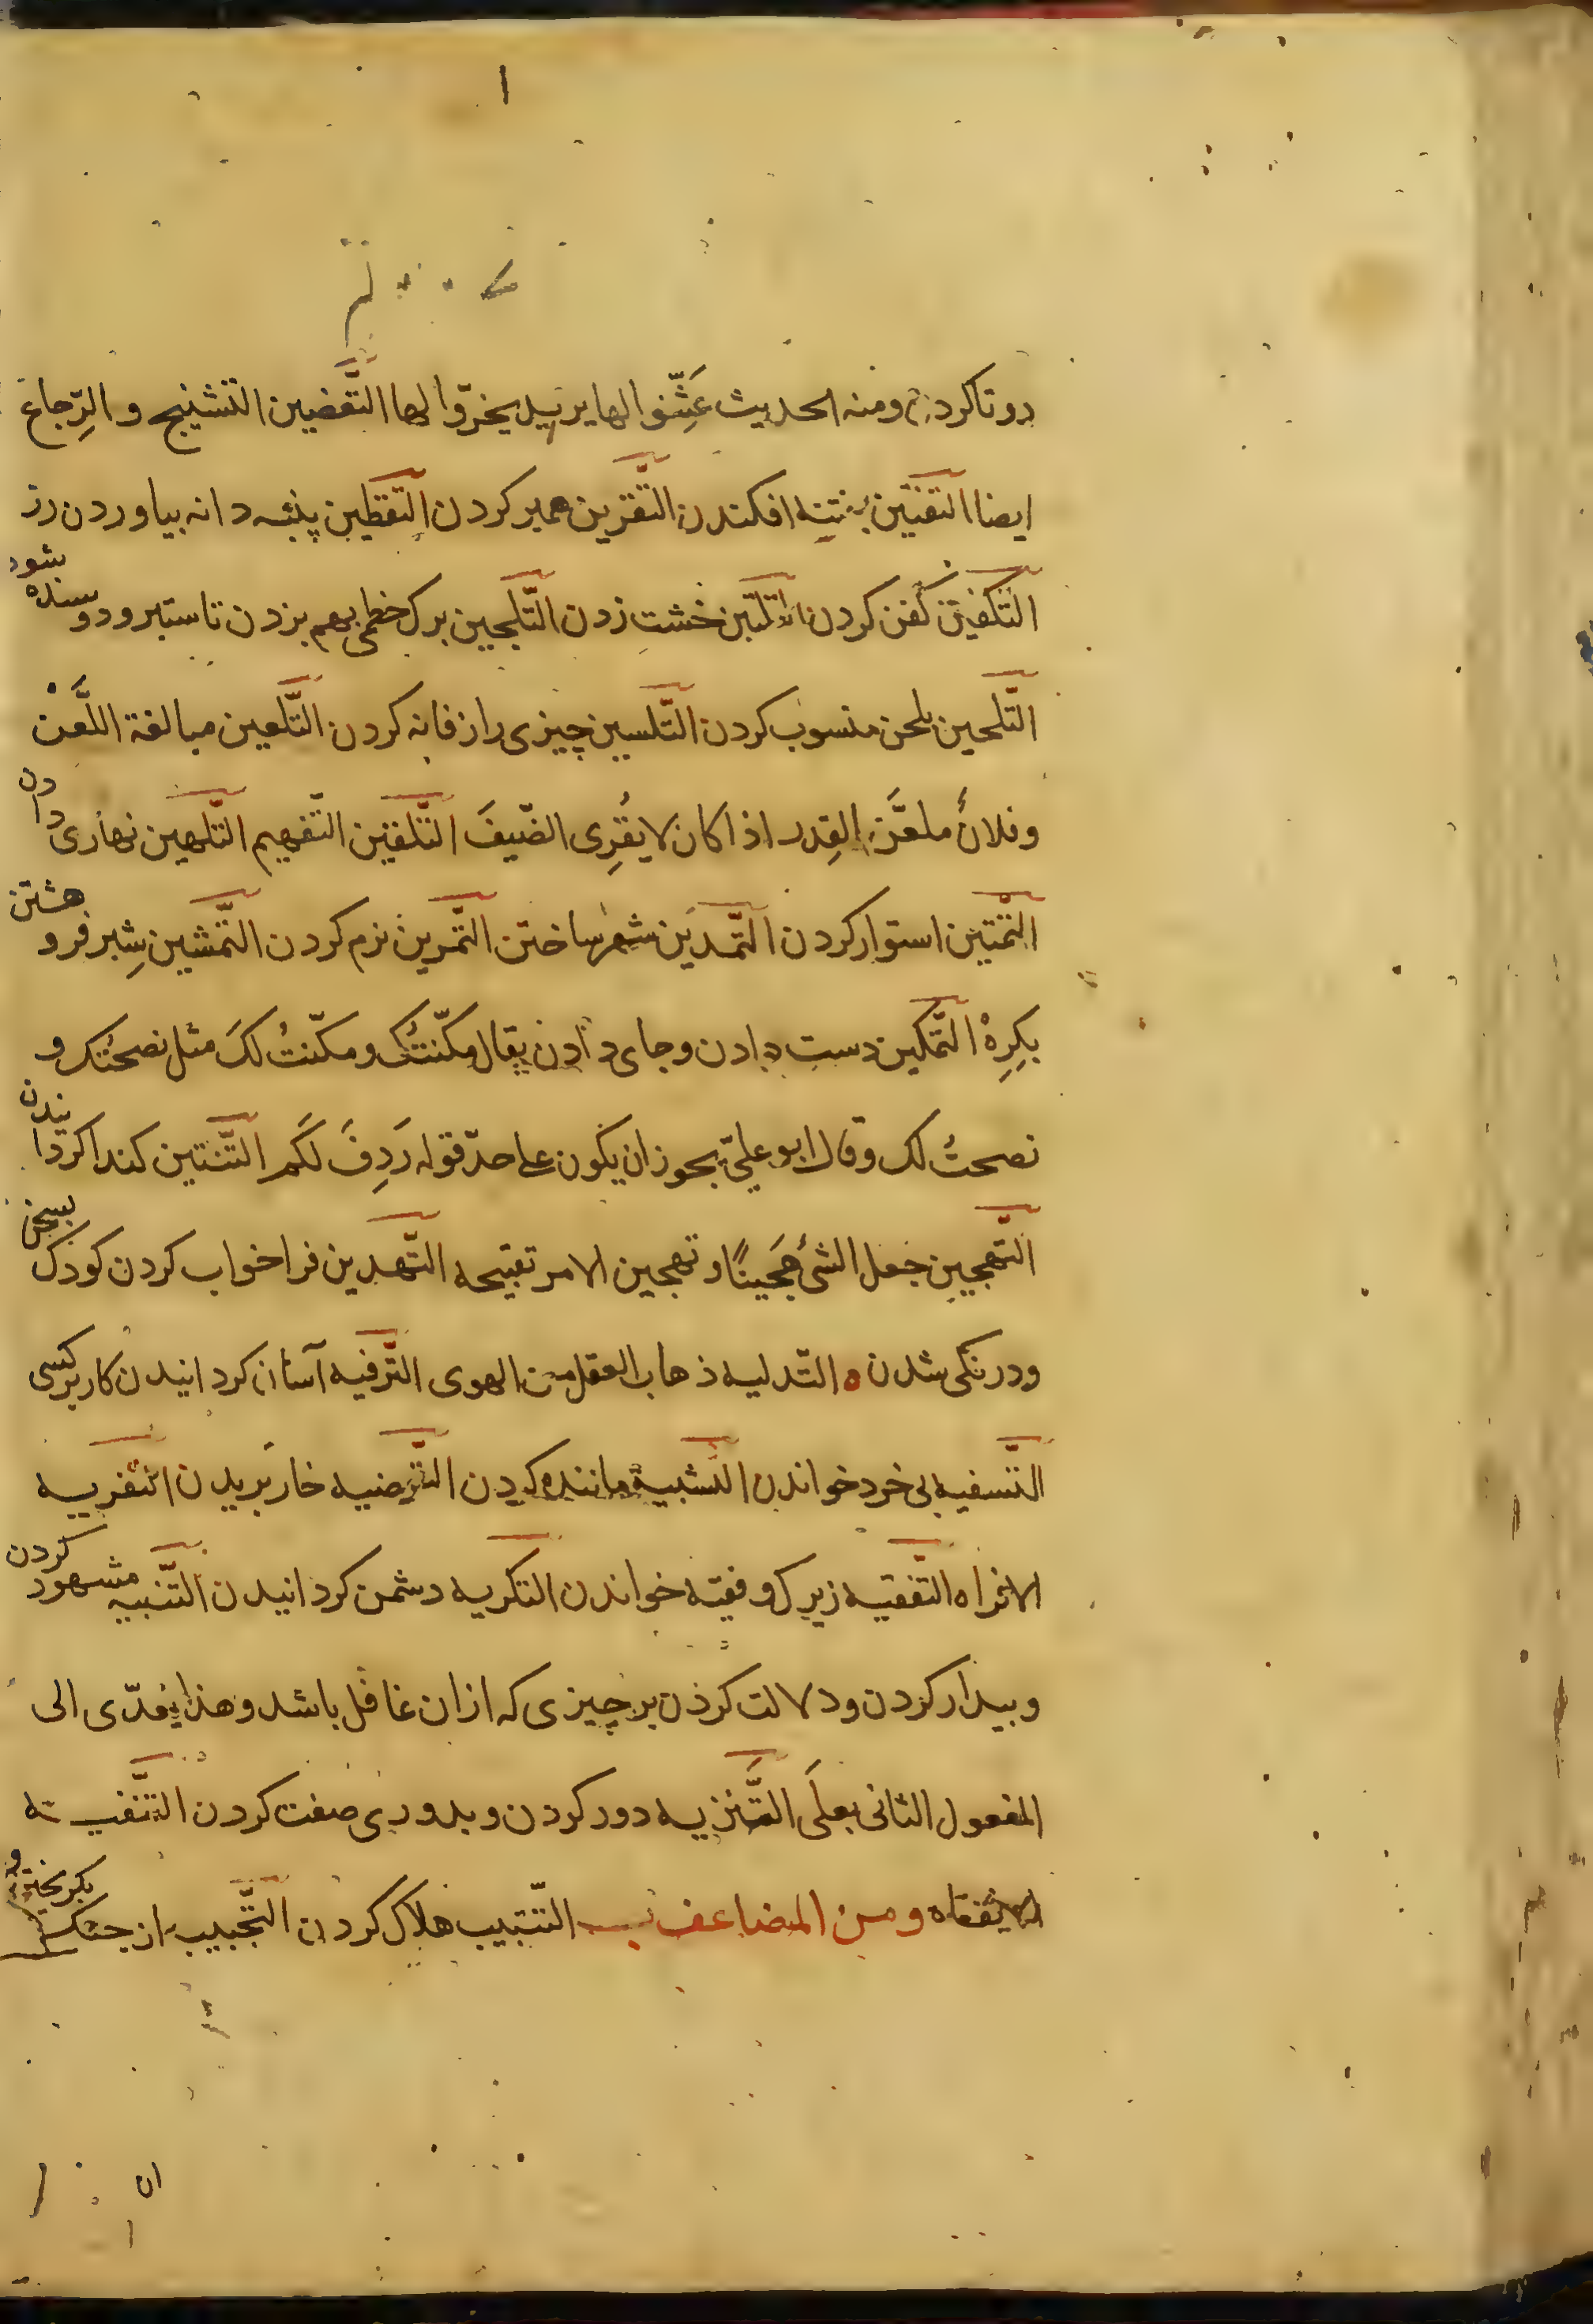 دوتا کردن ومنه الحدیث عَثِّنوا لها یرید بخرّوا لها التَّغضین التشنیج و الترجاع
ایضا التفتین بفتنه افکندن التقزین همیر کردن التقطین پنبه دانه بیاوردن رز
التکفین کفن کردن التلبین خشت زدن التّلجین برک خطمی بهم بزدن تا ستبر ودوسنده شود
التّلحین بلحن منسوب کردن التّلسین چیزی را زفانه کردن التّلعین مبالغة اللَّعْن
وفلانٌ ملعَّن القِدر اذا کان لا یَقْرِی الضّیفَ التّلقین التّفهیم التّلهین نهاری دادن
التّمتین استوار کردن التّمدین شهر ساختن التّمرین نرم کردن التّمشین شیر فرو هشتن
بکِرِهْ التّمکین دست دادن وجای دادن یقال مکّنتُک ومکّنتُ لکَ مثل نصحتُک و
نصحتُ لک وقال ابو علیّ یجوز ان یکون علی حدّ قوله رَدِفَ لَکم التَّنتین کندا کردانیدن
التّهجین جعل الشئ هَجینًا و تهجین الامر تقبیحه التّهدین فرا خواب کردن کودک بسخن
ودرنکی شدن ه التّدلیه ذهاب العقل من الهوی التّرفیه آسان کردانیدن کار بر کسی
التّسفیه بی خرد خواندن التّشبیه مانند کردن التّعضیه خار بریدن التفریه
الافراه التّفقیه زیرک و فقیه خواندن التکریه دشمن کردانیدن التّنبیه مشهود کردن
وبیدار کردن ودلالت کردن بر چیزی که ازان غافل باشد وهذا یعدّی الی
المفعول الثانی بعلَی التَّنزیه دور کردن وبدوری صفت کردن التّنفیه
الانفاه ومن المضاعف ب التّتبیب هلاک کردن التّجبیب از جنک بکریختن و
ان